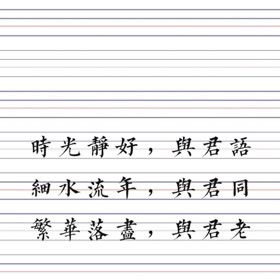 時光靜好，與君語
細水流年，與君同
繁華落盡，與君老